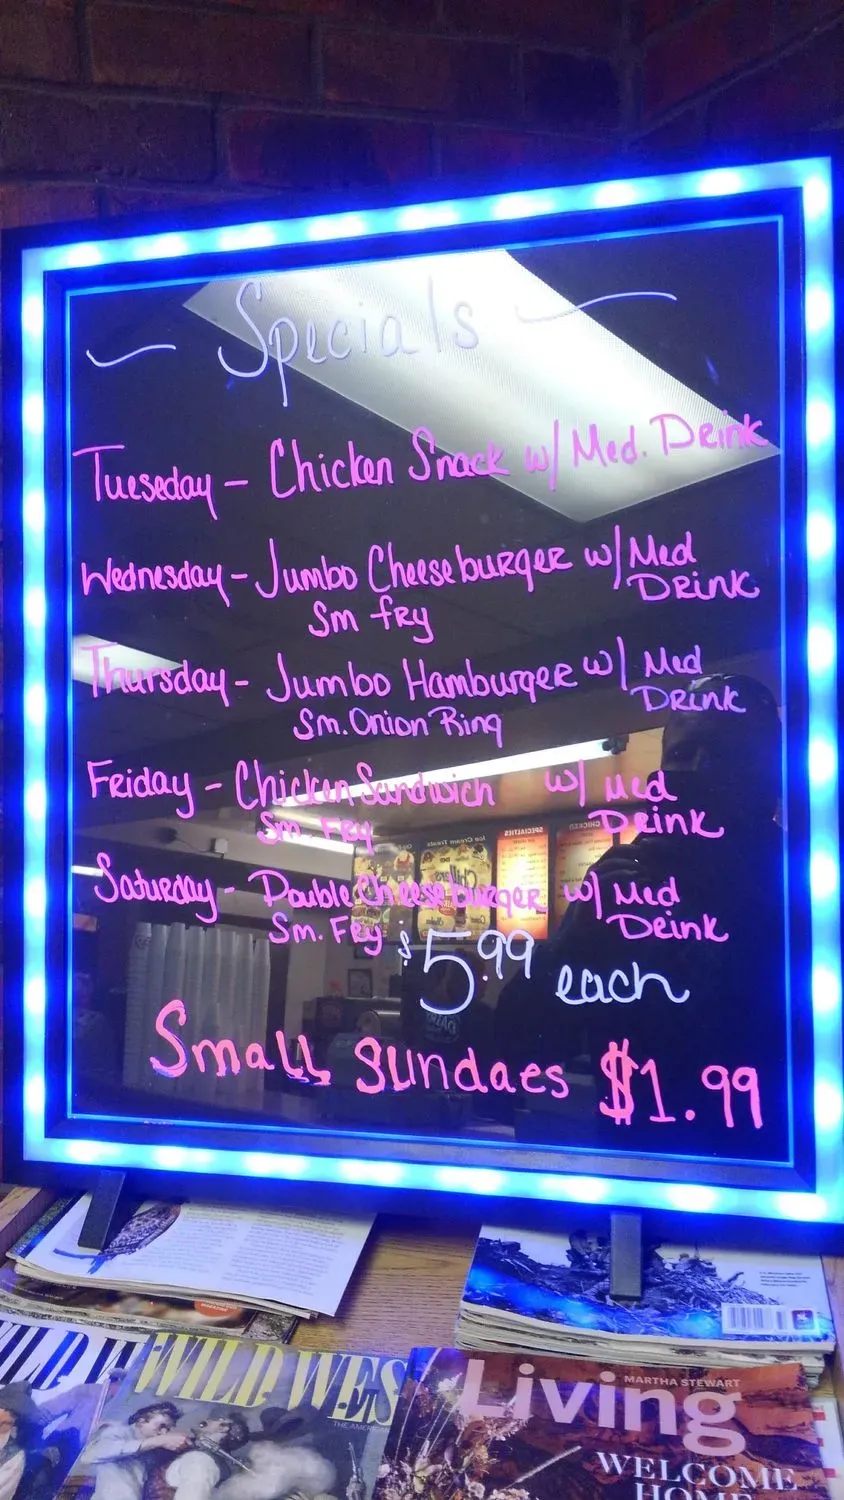 Specials
Tueseday - Chicken Snack w/ Med. Drink
Wednesday - Jumbo Cheeseburger w/ Med Drink
Sm fry
Thursday - Jumbo Hamburger w/ Med Drink
Sm. Onion Ring
Friday - Chicken Sandwich w/ Med Drink
Sm. Fry
Saturday - Double Cheeseburger w/ Med Drink
Sm. Fry
$5.99 each
Small Sundaes $1.99
WILD WES
THE AMERICAN
Living
MARTHA STEWART
WELCOME
HOME